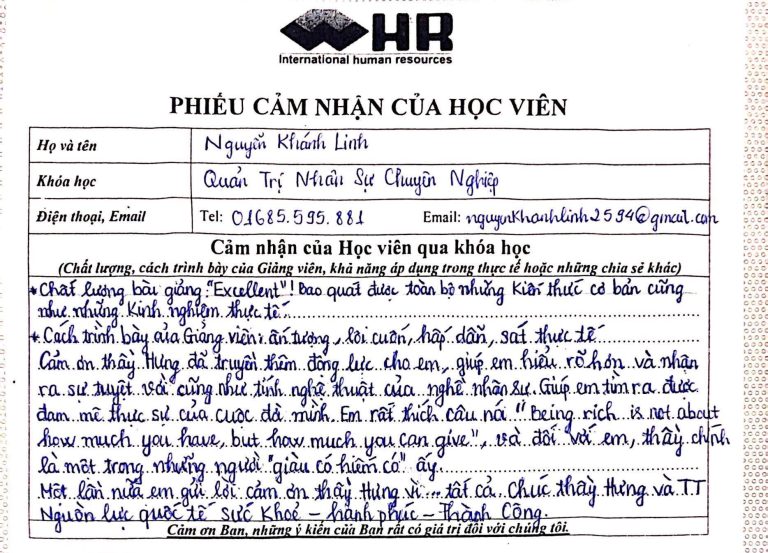 HR
International human resources
PHIẾU CẢM NHẬN CỦA HỌC VIÊN
Họ và tên Nguyễn Khánh Linh
Khóa học Quản Trị Nhân Sự Chuyên Nghiệp
Điện thoại, Email Tel: 01685.595.881 Email: nguyenkhanhlinh2594@gmail.com
Cảm nhận của Học viên qua khóa học
(Chất lượng, cách trình bày của Giảng viên, khả năng áp dụng trong thực tế hoặc những chia sẻ khác)
* Chất lượng bài giảng: "Excellent"! Bao quát được toàn bộ những kiến thức cơ bản cũng
như những kinh nghiệm thực tế.
* Cách trình bày của Giảng viên: ấn tượng, lôi cuốn, hấp dẫn, sát thực tế
Cảm ơn thầy Hưng đã truyền thêm động lực cho em, giúp em hiểu rõ hơn và nhận
ra sự tuyệt vời cũng như tính nghệ thuật của nghề nhân sự. Giúp em tìm ra được
đam mê thực sự của cuộc đời mình. Em rất thích câu nói "Being rich is not about
how much you have, but how much you can give", và đối với em, thầy chính
là một trong những người "giàu có hiếm có" ấy.
Một lần nữa em gửi lời cảm ơn thầy Hưng vì... tất cả. Chúc thầy Hưng và TT
Nguồn lực quốc tế Sức Khoẻ - hạnh phúc - Thành Công.
Cảm ơn Bạn, những ý kiến của Bạn rất có giá trị đối với chúng tôi.